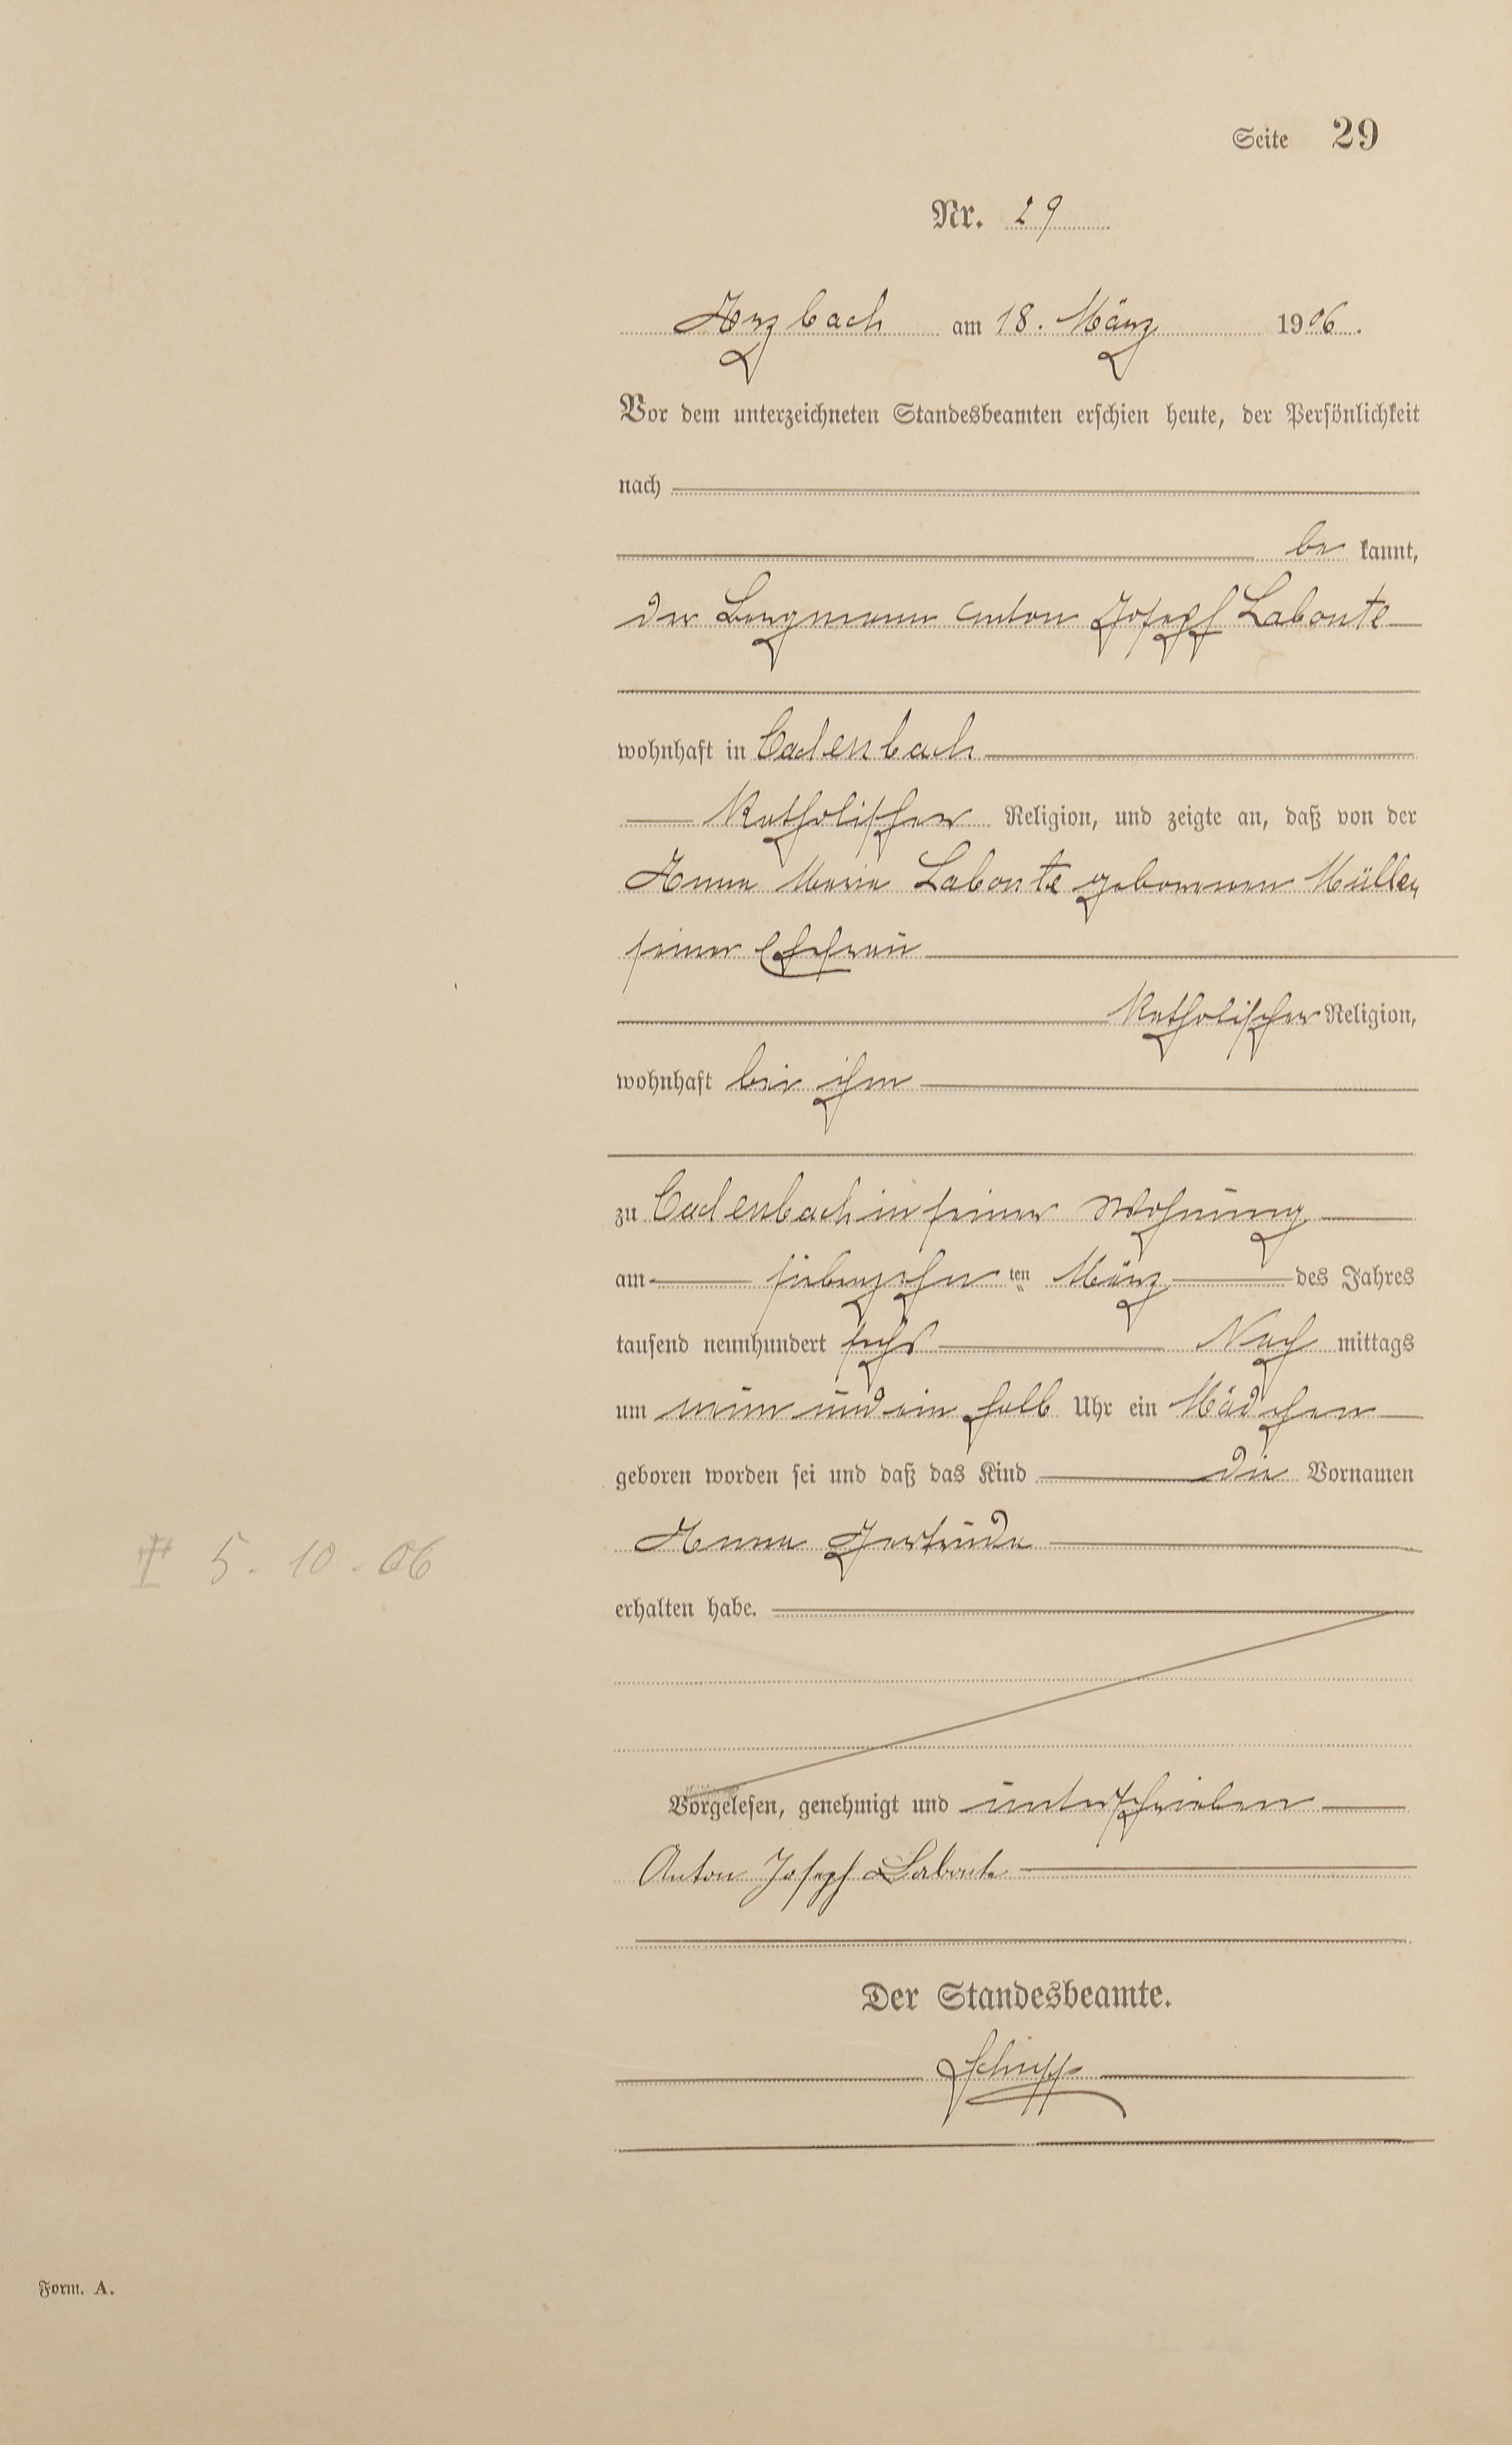 Seite 29
Nr. 29
Arzbach am 18. März 1906.
Vor dem unterzeichneten Standesbeamten erschien heute, der Persönlichkeit
nach
be kannt,
der Bergmann Anton Joseph Labonte
wohnhaft in Cadenbach
Katholischer Religion, und zeigte an, daß von der
Anna Maria Labonte geborenen Müller,
seiner Ehefrau
Katholischer Religion,
wohnhaft bei ihm
zu Cadenbach in seiner Wohnung
am siebenzehnten März des Jahres
tausend neunhundert sechs Nach mittags
um neun und ein halb Uhr ein Mädchen
geboren worden sei und daß das Kind die Vornamen
Anna Gertrude
‡ 5. 10. 06
erhalten habe.
Vorgelesen, genehmigt und unterschrieben
Anton Joseph Labonte
Der Standesbeamte.
Form. A.